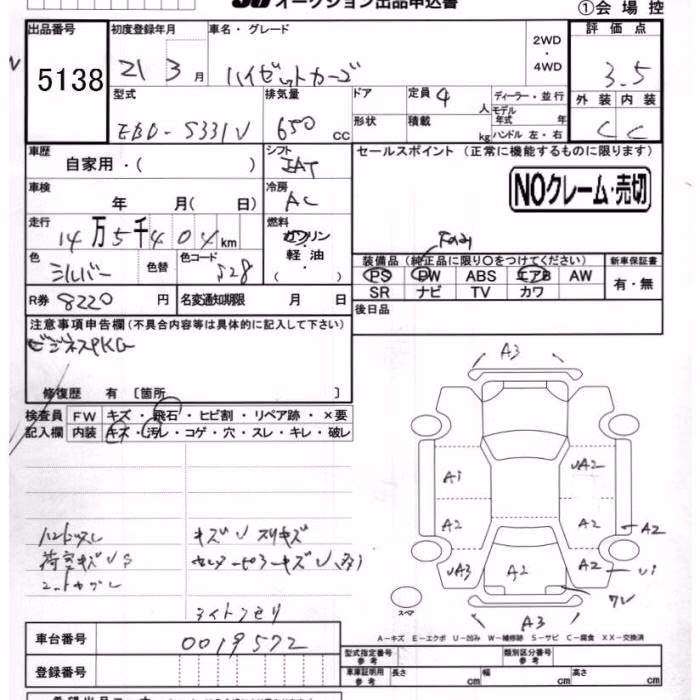 オークション出品申込書
①会場控
出品番号
5138
初度登録年月
21 3月
車名・グレード
ハイゼットカーゴ
2WD
・
4WD
評価点
3.5
型式
EBD-S331V
排気量
650 cc
ドア
形状
定員 4 人
積載 kg
ディーラー・並行
モデル
年式 年
ハンドル 左・右
外装 内装
C C
車歴
自家用・( )
シフト
IAT
セールスポイント (正常に機能するものに限ります)
NOクレーム・売切
車検
年 月( 日)
冷房
AC
走行
14万5千404km
燃料
ガソリン
軽油
( )
色
シルバー
色替
色コード
S28
装備品 (純正品に限り○をつけてください)
PS PW ABS エアB AW
SR ナビ TV カワ
新車保証書
有・無
R券 8220円
名変通知期限 月 日
後日品
注意事項申告欄(不具合内容等は具体的に記入して下さい)
ビジネスPKG
修復歴 有 〔箇所 〕
検査員
記入欄
FW キズ・飛石・ヒビ割・リペア跡・×要
内装 キズ・汚レ・コゲ・穴・スレ・キレ・破レ
キズU スリキズ
荷室キズUS
A3
A1
UA2
A2
A2
A2
UA3
A2
A2
U1
A3
スペア
A-キズ E-エクボ U-凹み W-補修跡 S-サビ C-腐食 XX-交換済
車台番号
0019572
登録番号
型式指定番号
参考
類別区分番号
参考
車庫証明用
参考
長さ cm
幅 cm
高さ cm